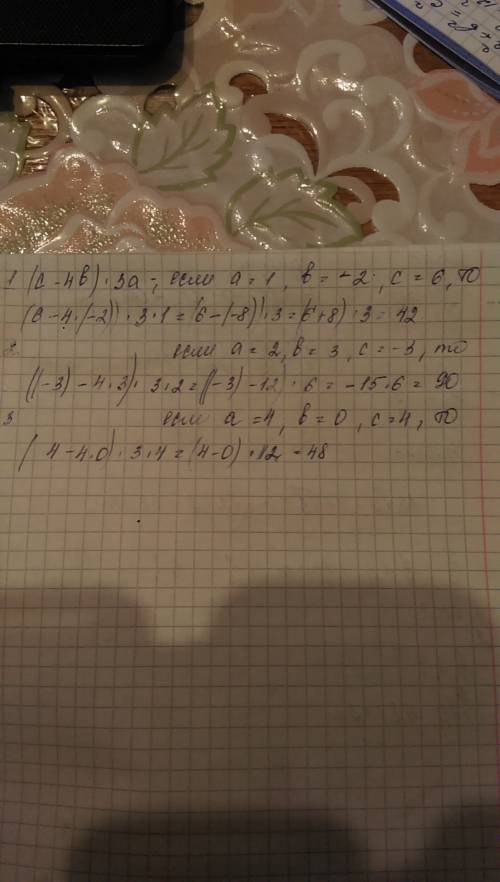 1 (c - 4в) · 3а -, если а = 1, в = -2, с = 6, то
(6 - 4 · (-2)) · 3 · 1 = (6 - (-8)) · 3 = (6 + 8) · 3 = 42
2. если а = 2, в = 3, с = -3, то
((-3) - 4 · 3) · 3 · 2 = ((-3) - 12) · 6 = -15 · 6 = 90
3 если а = 4, в = 0, с = 4, то
(4 - 4 · 0) · 3 · 4 = (4 - 0) · 12 = 48